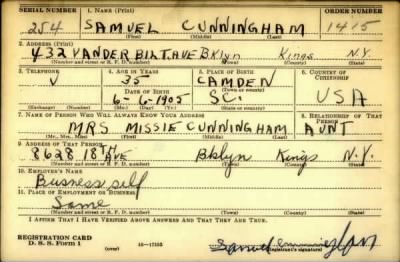 SERIAL NUMBER 1. NAME (Print) ORDER NUMBER
254 SAMUEL CUNNINGHAM 1415
(First) (Middle) (Last)
2. ADDRESS (Print)
432 VANDERBILT AVE BKlyn Kings N.Y.
(Number and street or R. F. D. number) (Town) (County) (State)
3. TELEPHONE 4. AGE IN YEARS 5. PLACE OF BIRTH 6. COUNTRY OF CITIZENSHIP
V 35 CAMDEN
DATE OF BIRTH (Town or county)
6-6-1905 SC. USA
(Exchange) (Number) (Mo.) (Day) (Yr.) (State or country)
7. NAME OF PERSON WHO WILL ALWAYS KNOW YOUR ADDRESS 8. RELATIONSHIP OF THAT PERSON
MRS MISSIE CUNNINGHAM AUNT
(Mr., Mrs., Miss) (First) (Middle) (Last)
9. ADDRESS OF THAT PERSON
8628 18TH AVE Bklyn Kings N.Y.
(Number and street or R. F. D. number) (Town) (County) (State)
10. EMPLOYER'S NAME
Busness self
11. PLACE OF EMPLOYMENT OR BUSINESS
Same
(Number and street or R. F. D. number) (Town) (County) (State)
I AFFIRM THAT I HAVE VERIFIED ABOVE ANSWERS AND THAT THEY ARE TRUE.
REGISTRATION CARD
D. S. S. Form 1 (over) 16-17105 Samuel Cunningham
(Registrant's signature)